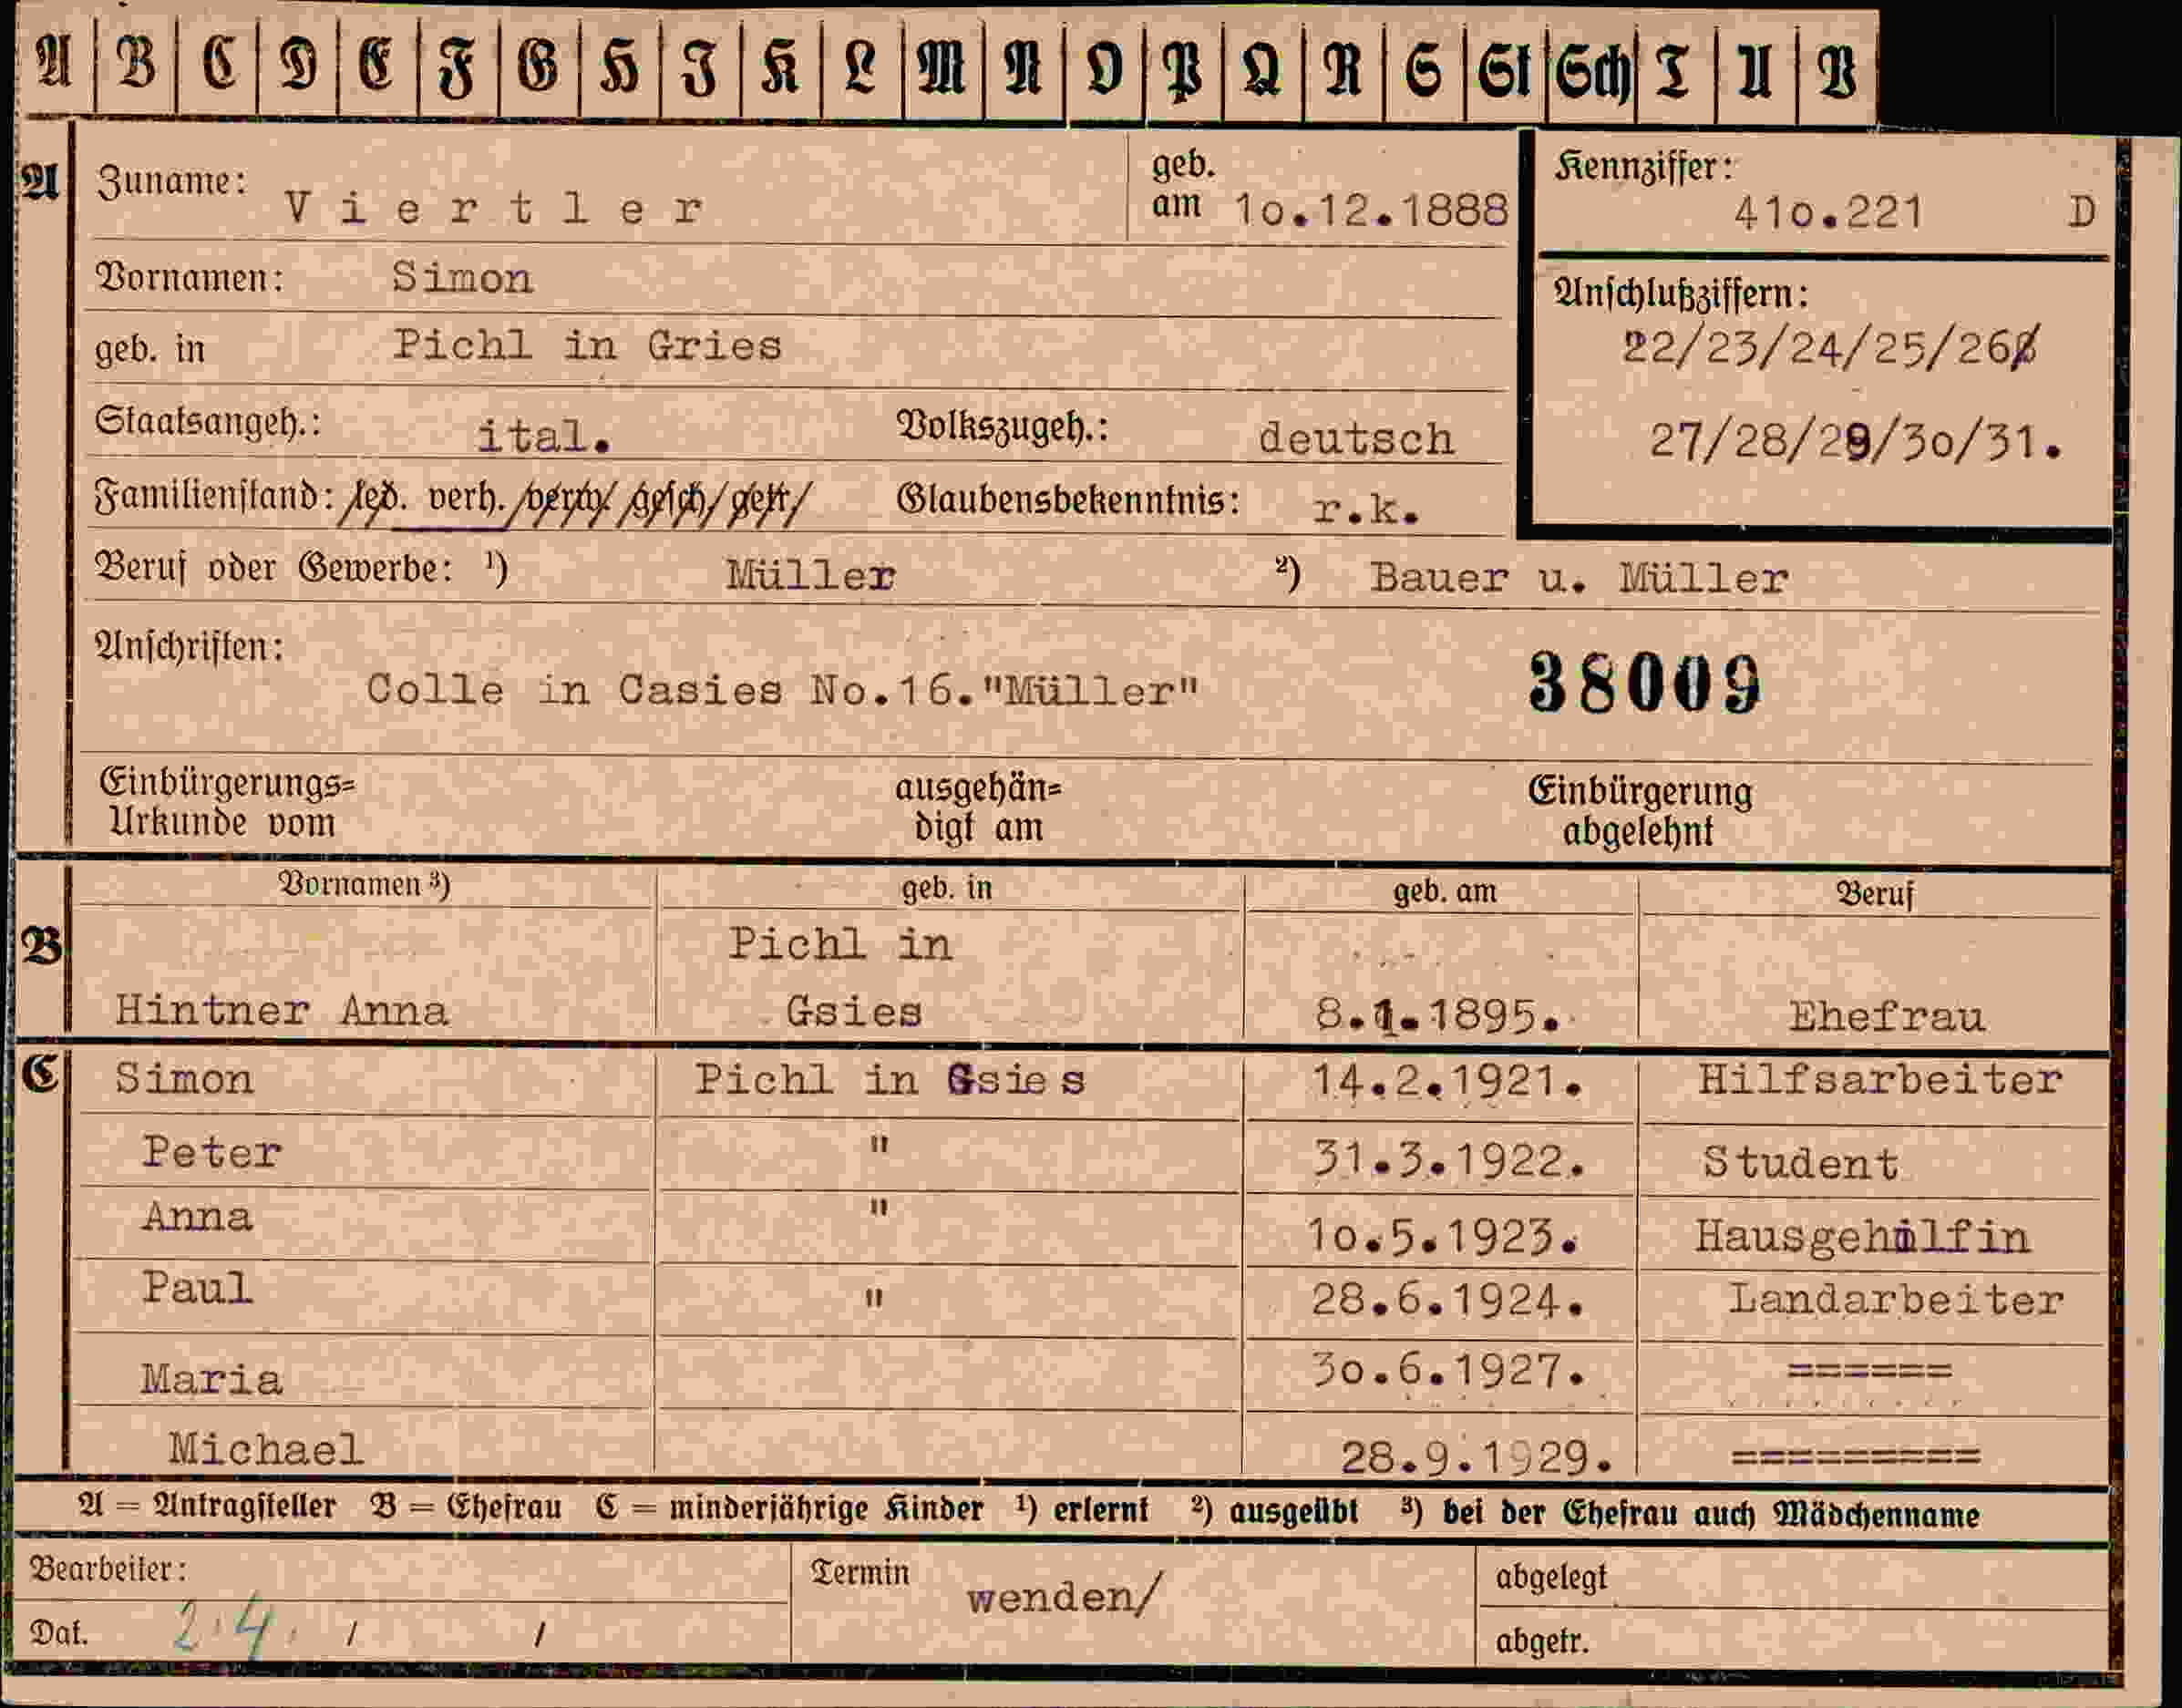 A B C D E F G H I K L M N O P Q R S St Sch T U V
A Zuname: Viertler geb. am 10.12.1888 Kennziffer: 410.221 D
Vornamen: Simon
geb. in Pichl in Gries Anschlußziffern: 22/23/24/25/26
Staatsangeh.: ital. Volkszugeh.: deutsch 27/28/29/30/31.
Familienstand: led. verh. verw. gesch. getr. Glaubensbekenntnis: r.k.
Beruf oder Gewerbe: ¹) Müller ²) Bauer u. Müller
Anschriften:
Colle in Casies No.16."Müller" 38009
Einbürgerungs= ausgehän= Einbürgerung
Urkunde vom digt am abgelehnt
Vornamen ³) geb. in geb. am Beruf
B Pichl in
Hintner Anna Gsies 8.1.1895. Ehefrau
C Simon Pichl in Gsies 14.2.1921. Hilfsarbeiter
Peter " 31.3.1922. Student
Anna " 10.5.1923. Hausgehilfin
Paul " 28.6.1924. Landarbeiter
Maria 30.6.1927. ======
Michael 28.9.1929. =========
A = Antragsteller B = Ehefrau C = minderjährige Kinder ¹) erlernt ²) ausgeübt ³) bei der Ehefrau auch Mädchenname
Bearbeiter: Termin wenden/ abgelegt
Dat. 2.4. / / abgetr.